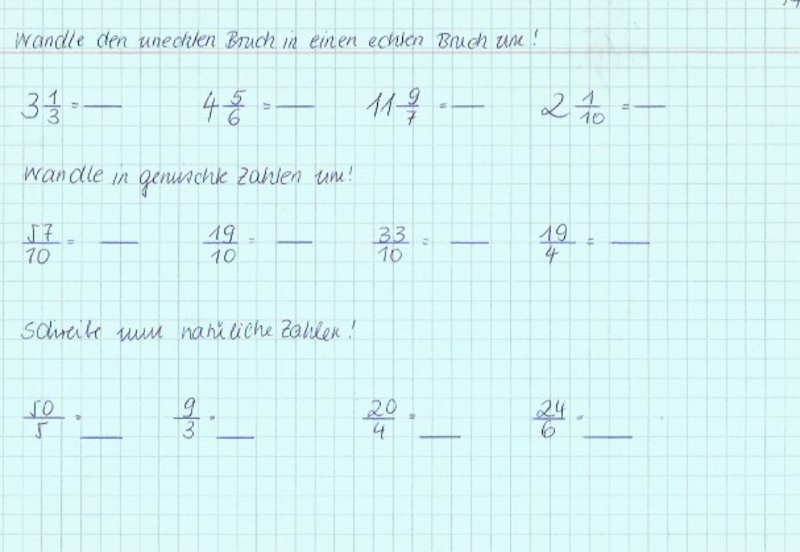 Wandle den unechten Bruch in einen echten Bruch um!
3 1/3 = ___ 4 5/6 = ___ 11 9/7 = ___ 2 1/10 = ___
Wandle in gemischte Zahlen um!
57/10 = ___ 19/10 = ___ 33/10 = ___ 19/4 = ___
Schreibe nun natürliche Zahlen!
50/5 = ___ 9/3 = ___ 20/4 = ___ 24/6 = ___